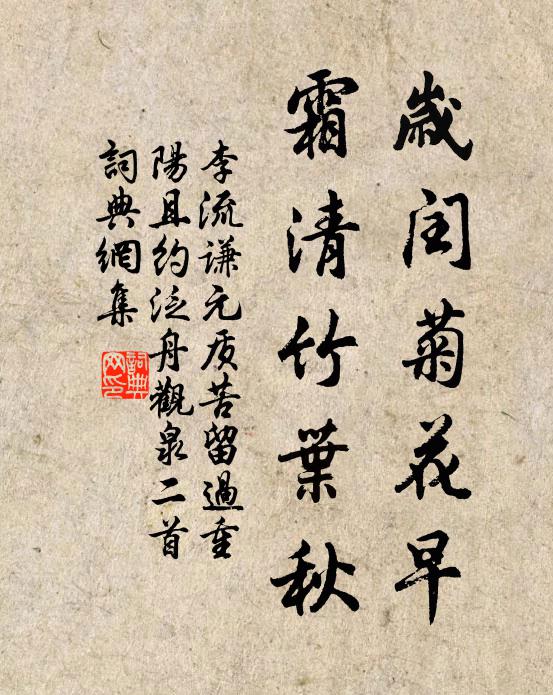 歲閏菊花早
霜清竹葉秋
李流谦元质苦留過重
陽且约泛舟觀泉二首
詞典網集
詞典網印